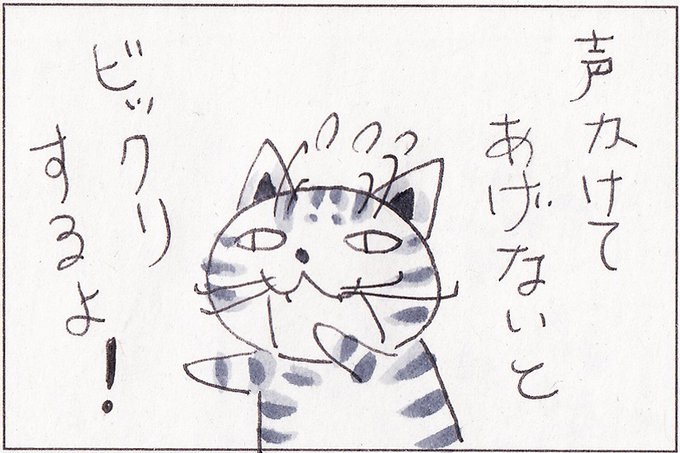 声かけて
あげないと
ビックリ
するよ!